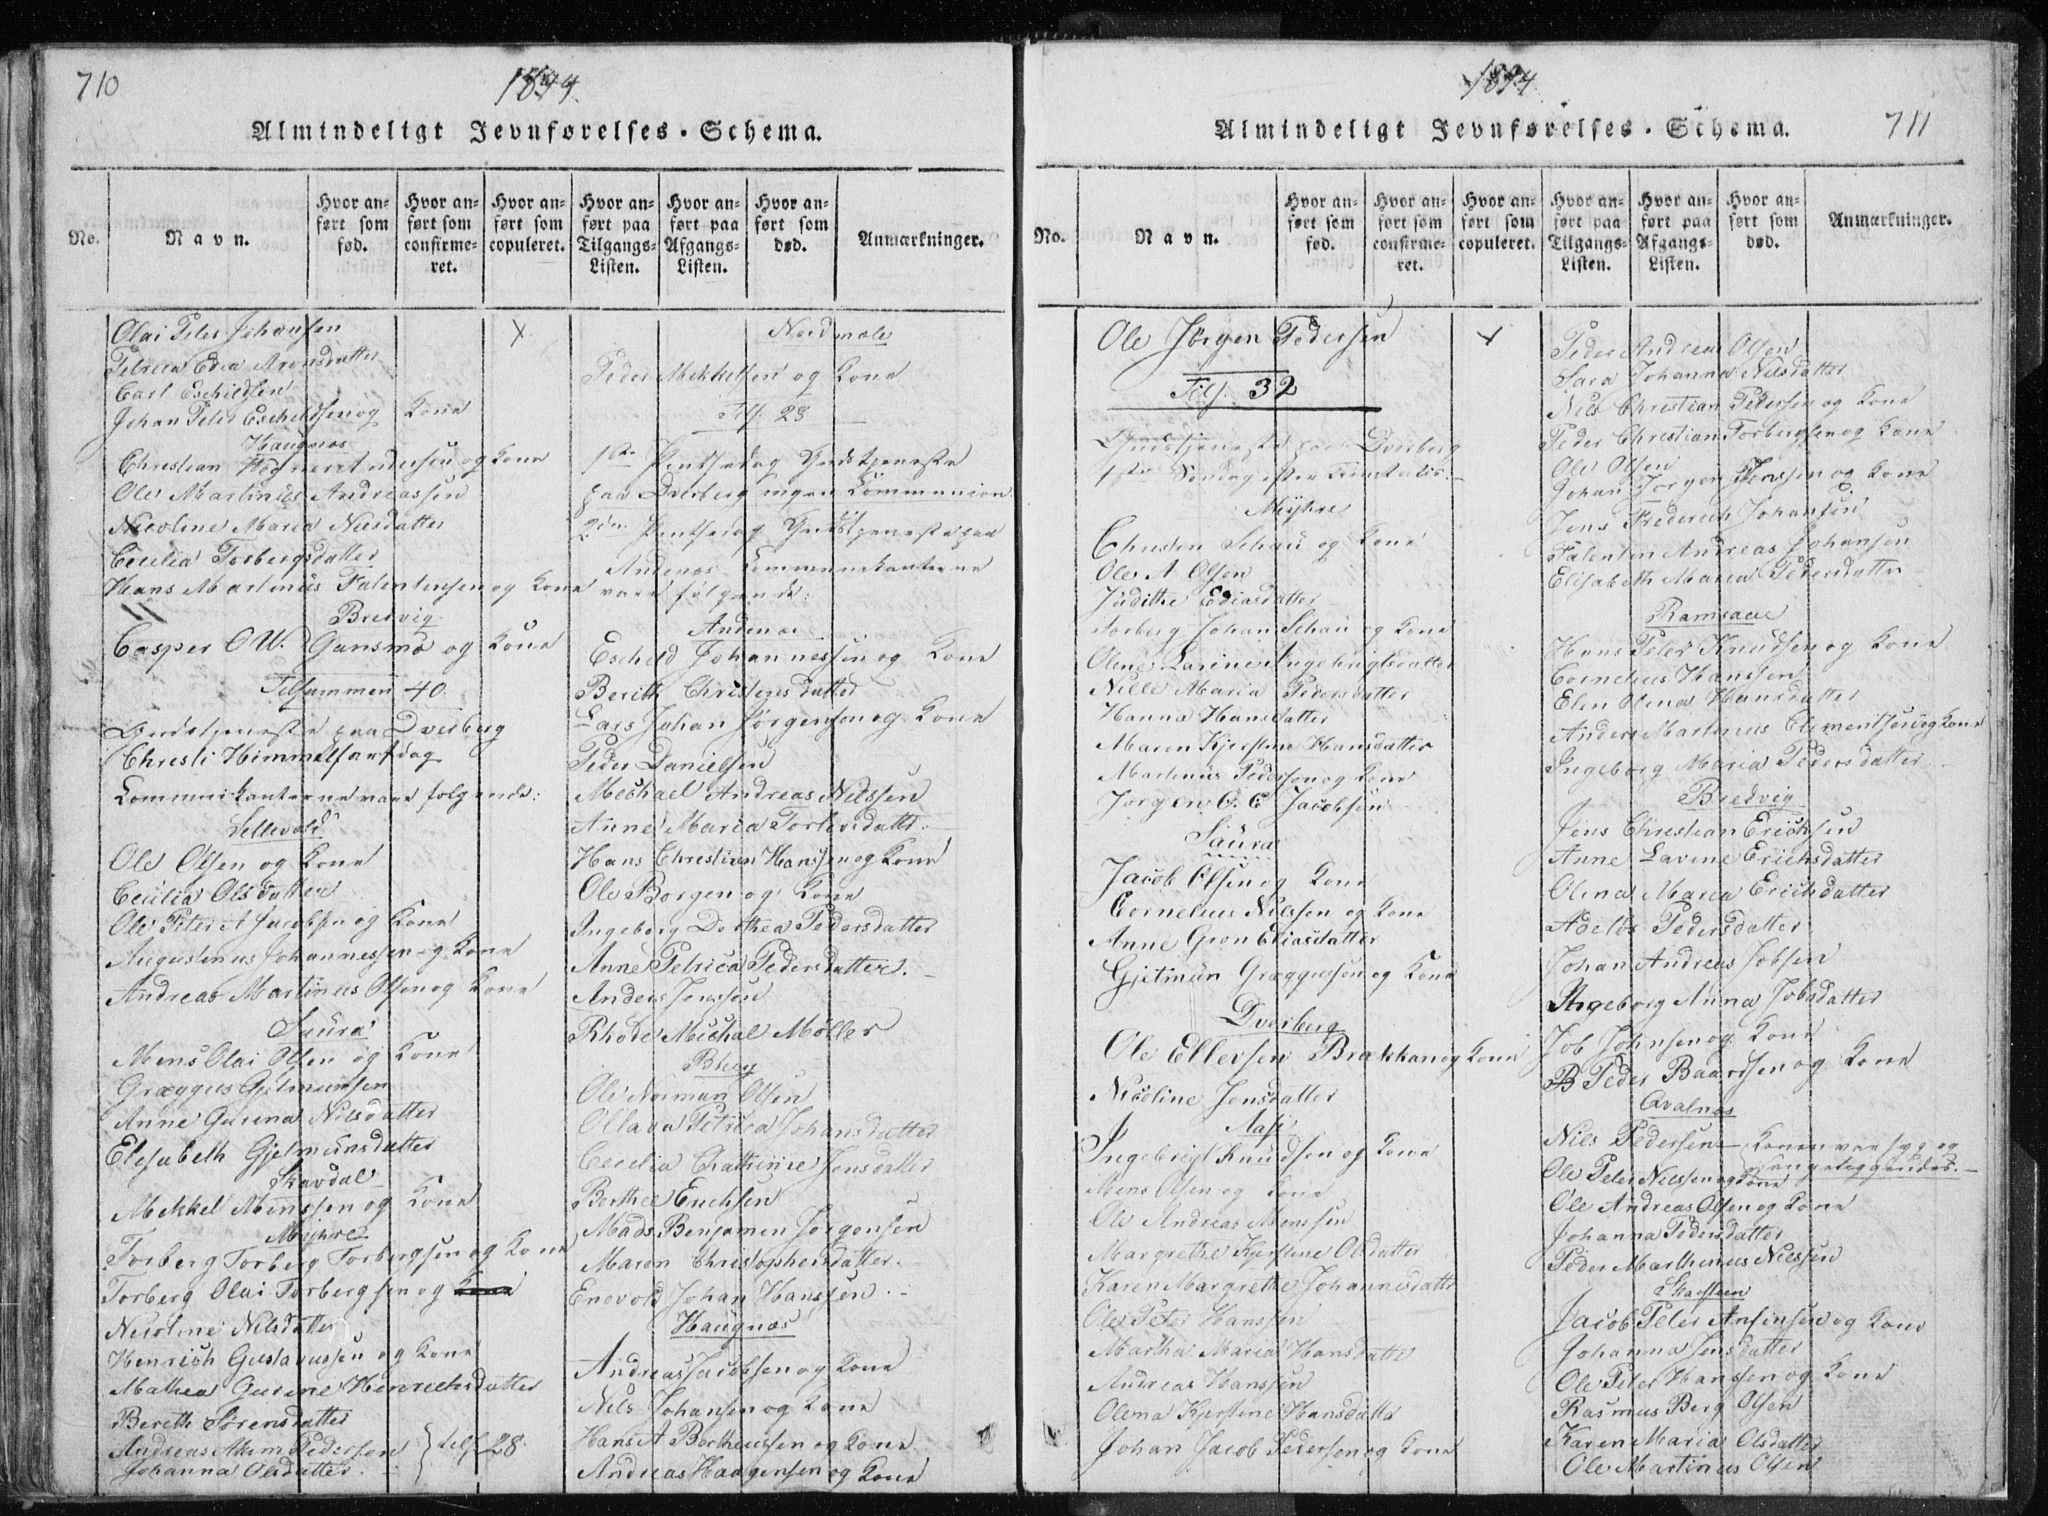 710
1844.
Almindeligt Jevnførelses-Schema.
No.
Navn.
Hvor anført som fød.
Hvor anført som confirmeret.
Hvor anført som copuleret.
Hvor anført paa Tilgangs-Listen.
Hvor anført paa Afgangs-Listen.
Hvor anført som død.
Anmærkninger.
Olai Peter Johansen
Petrica Edea Aronsdatter
Carl Eschildsen
Johan Peter Eschildsen og Kone
Haugnæs
Christian Andersen og Kone
Ole Martinus Andreassen
Nicoline Maria Nilsdatter
Cecilia Torbergsdatter
Hans Martinus Falentinsen og Kone
Bredvig
Casper O W. Gunsmo og Kone
Tilsammen 40.
Gudstjeneste paa Dverberg
Christi Himmelfartsdag
Communikanterne vare følgende:
Sellevold
Ole Olsen og Kone
Cecilia Olsdatter
Ole Peter A Jacobsen og Kone
Augustinus Johannessen og Kone
Andreas Martinus Olsen og Kone
Saura
Mens Olai Olsen og Kone
Græggus Gjelmunsen
Anne Gurina Nilsdatter
Elisabeth Gjelmunsdatter
Skavdal
Mekkel Menssen og Kone
Myhre
Torberg Torberg Torbergsen og Kone
Torberg Olai Torbergsen og Kone
Nicoline Nilsdatter
Henrich Gustavussen og Kone
Mathea Gurine Henrichsdatter
Bereth Sørensdatter
Andreas Pedersen
Johanna Olsdatter
tils. 28.
Nordmele
Peder Mekkelsen og Kone
Tils. 28
1ste Pintsedag Gudstjeneste
paa Dverberg ingen Communion
2den Pintsedag Gudstjeneste paa
Andenæs Communikanterne
vare følgende:
Andenæs
Eschild Johannessen og Kone
Berith Christensdatter
Lars Johan Jørgensen og Kone
Peder Danielsen
Michael Andreas Nilssen
Anne Maria Torbersdatter
Hans Christian Hanssen og Kone
Ole Borgen og Kone
Ingeborg Dorthea Pedersdatter
Anne Petrica Pedersdatter.
Anders Jenssen
Rhode Michal Møller
Bleg
Ole Norman Olsen
Ollava Petrica Johansdatter
Cecilia Chathrine Jensdatter
Berthee Erichsen
Mads Benjamin Jørgensen
Maren Christophersdatter.
Enevold Johan Hanssen.
Haugnæs
Andreas Jacobsen og Kone
Nils Johansen og Kone
Hans A Bertheussen og Kone
Andreas Haagensen og Kone
1844.
711
Almindeligt Jevnførelses-Schema.
No.
Navn.
Hvor anført som fød.
Hvor anført som confirmeret.
Hvor anført som copuleret.
Hvor anført paa Tilgangs-Listen.
Hvor anført paa Afgangs-Listen.
Hvor anført som død.
Anmærkninger.
Ole Jørgen Pedersen
Tils. 32
Gudstjeneste paa Dverberg
1ste Søndag efter Trinitatis.
Myhre
Christen Schau og Kone
Ole A Olsen
Judithe Eliasdatter
Torberg Johan Schau og Kone
Olene Larine Ingebrigtsdatter
Nille Maria Pedersdatter
Hanna Hansdatter
Maren Kjerstine Hansdatter
Martinus Pedersen og Kone
Jørgen C. C Jacobsen
Saura
Jacob Olsen og Kone
Cornelius Nilssen og Kone
Anne Gron Eliasdatter
Gjetmun Græggussen og Kone
Dverberg
Ole Ellersen Brakkan og Kone
Nicoline Jensdatter
Aase
Ingebrigt Knudsen og Kone
Mens Olsen og Kone
Ole Andreas Menssen
Margrethe Kjerstine Olsdatter
Karen Margrethe Johannesdatter
Ole Peter Hanssen
Martha Maria Hansdatter
Andreas Hanssen
Olena Kjerstine Hansdatter
Johan Jacob Pedersen og Kone
Peder Andreas Olsen
Sara Johanna Nilsdatter
Nils Christian Pedersen og Kone
Peder Christian Torbergsen og Kone
Ole Olsen
Johan Jørgen Jenssen og Kone
Jens Frederich Johansen
Falentin Andreas Johansen
Elisabeth Maria Pedersdatter
Ramsaae
Hans Peter Knudsen og Kone
Cornelius Hanssen
Elen Olena Hansdatter
Anders Martinus Clementsen og Kone
Ingeborg Maria Pedersdatter
Bredvig
Jens Christian Erichsen
Anne Lavine Erichsdatter
Olena Maria Erichsdatter
Adelus Pedersdatter
Johan Andreas Jobsen
Ingeborg Anna Jobsdatter
Job Johnsen og Kone
Peder Baardsen og Kone
Qvalnæs
Nils Pedersen – Konen var syg og
sengeliggendes.
Ole Peter Nilssen og Kone
Ole Andreas Olsen og Kone
Johanna Pedersdatter
Peder Marthinus Nilssen
Skarsteen
Jacob Peter Ansinsen og Kone
Johanna Jensdatter
Ole Peter Hanssen og Kone
Rasmus Berg Olsen
Karen Maria Olsdatter
Ole Martinus Olsen